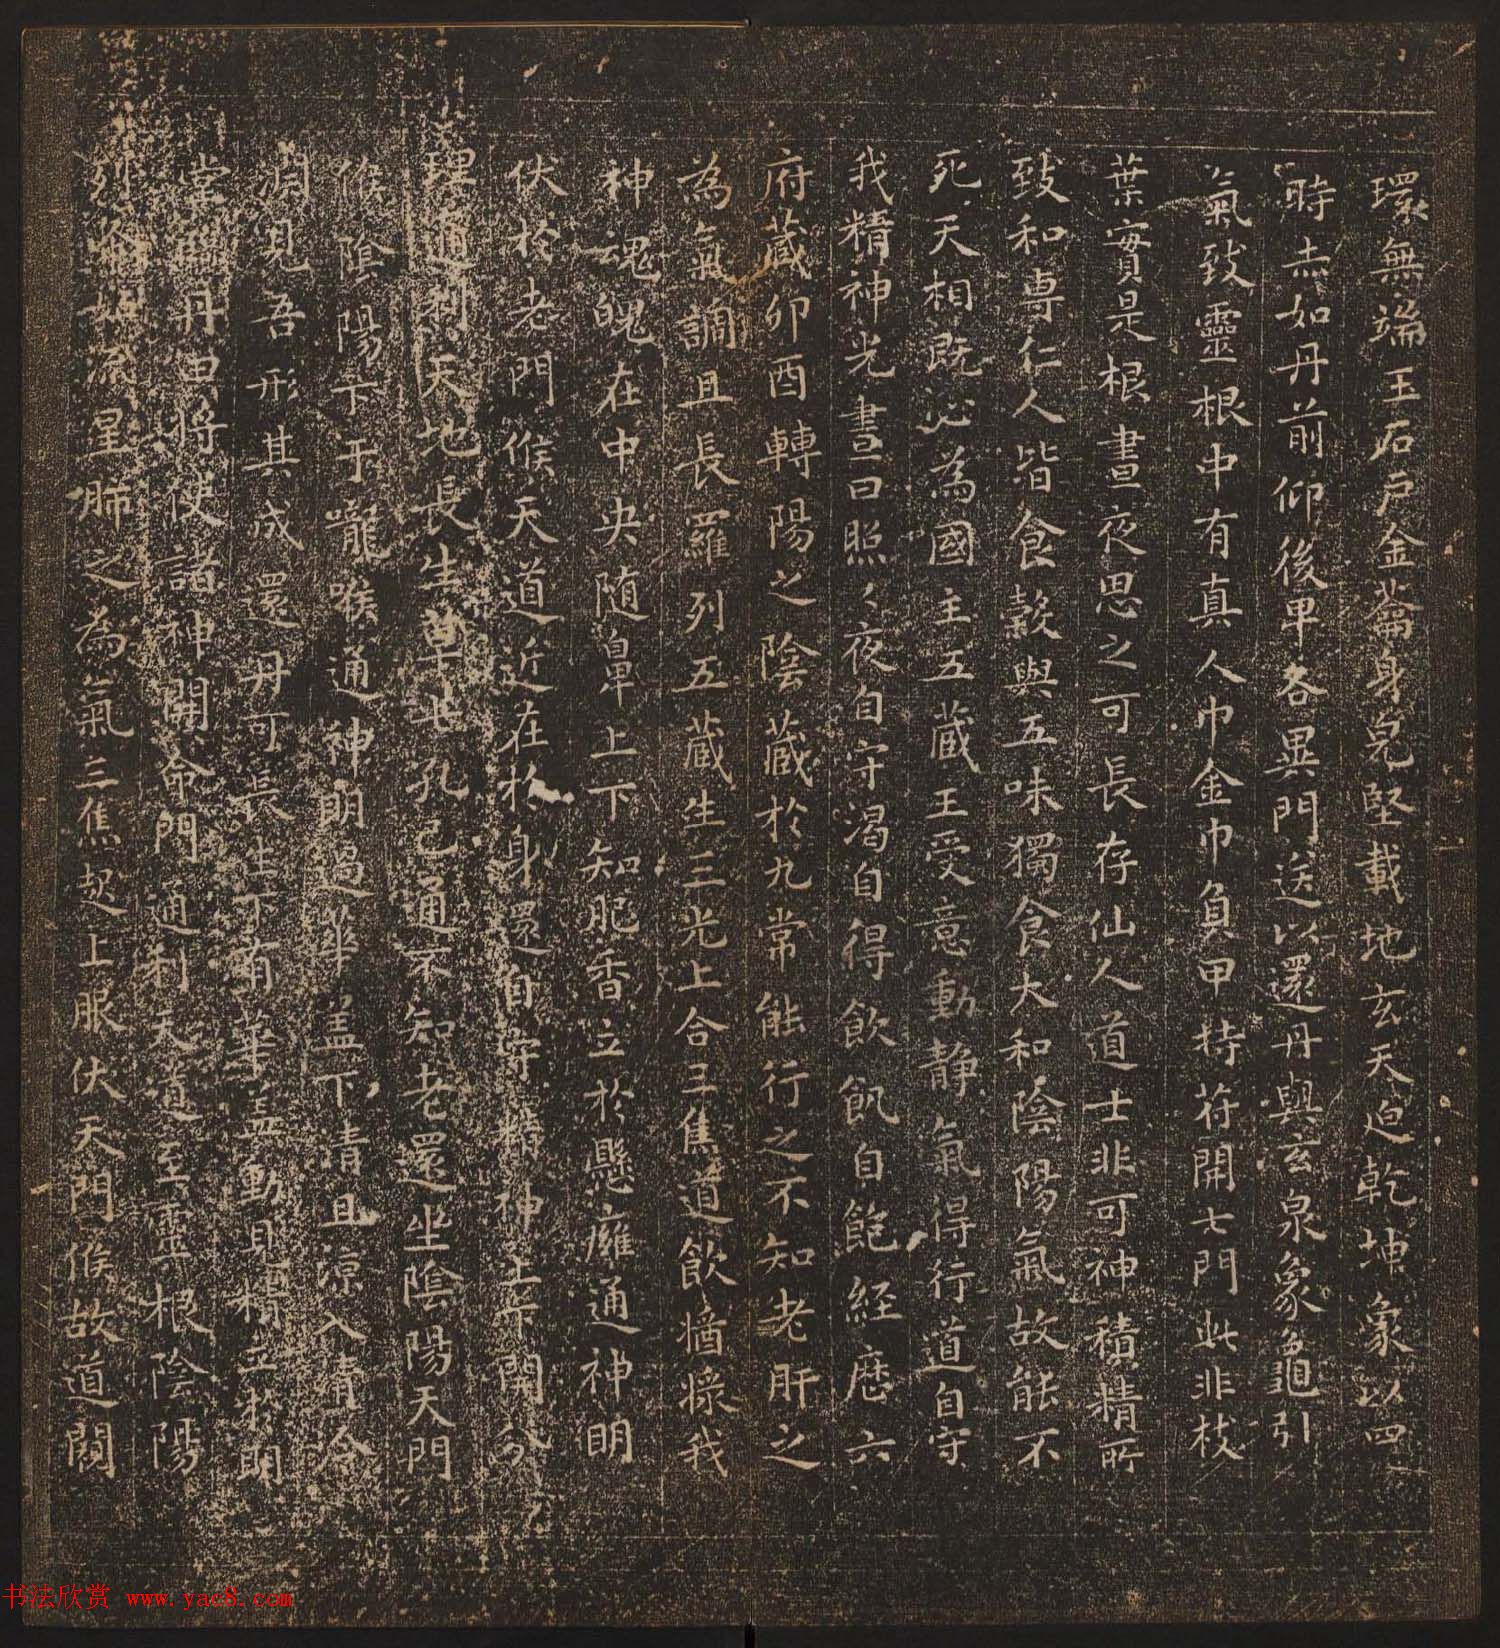 環無端玉石戶金蘥身皃堅載地玄天迫乾坤象以四
時赤如丹前仰後卑各異門送以還丹與玄泉象龜引
氣致靈根中有真人巾金巾負甲持苻開七門此非枝
葉實是根晝夜思之可長存仙人道士非可神積精所
致和專仁人皆食穀與五味獨食大和陰陽氣故能不
死天相既心為國主五藏王受意動静氣得行道自守
我精神光晝日照〻夜自守渴自得飲飢自飽經歷六
府藏卯酉轉陽之陰藏於九常能行之不知老肝之
為氣調且長羅列五藏生三光上合三焦道飲醬漿我
神魂魄在中央随鼻上下知肥香立於懸廱通神明
伏於老門候天道近在於身還自守精神上下開分
理通利天地長生草七孔已通不知老還坐陰陽天門
候陰陽下于嚨喉通神明過華盖下清且涼入清泠
淵見吾形其成還丹可長生下有華盖動見精立於明
堂臨丹田將使諸神開命門通利天道至靈根陰陽
列布如流星肺之為氣三焦起上服伏天門候故道闚
书法欣赏 www.yac8.com